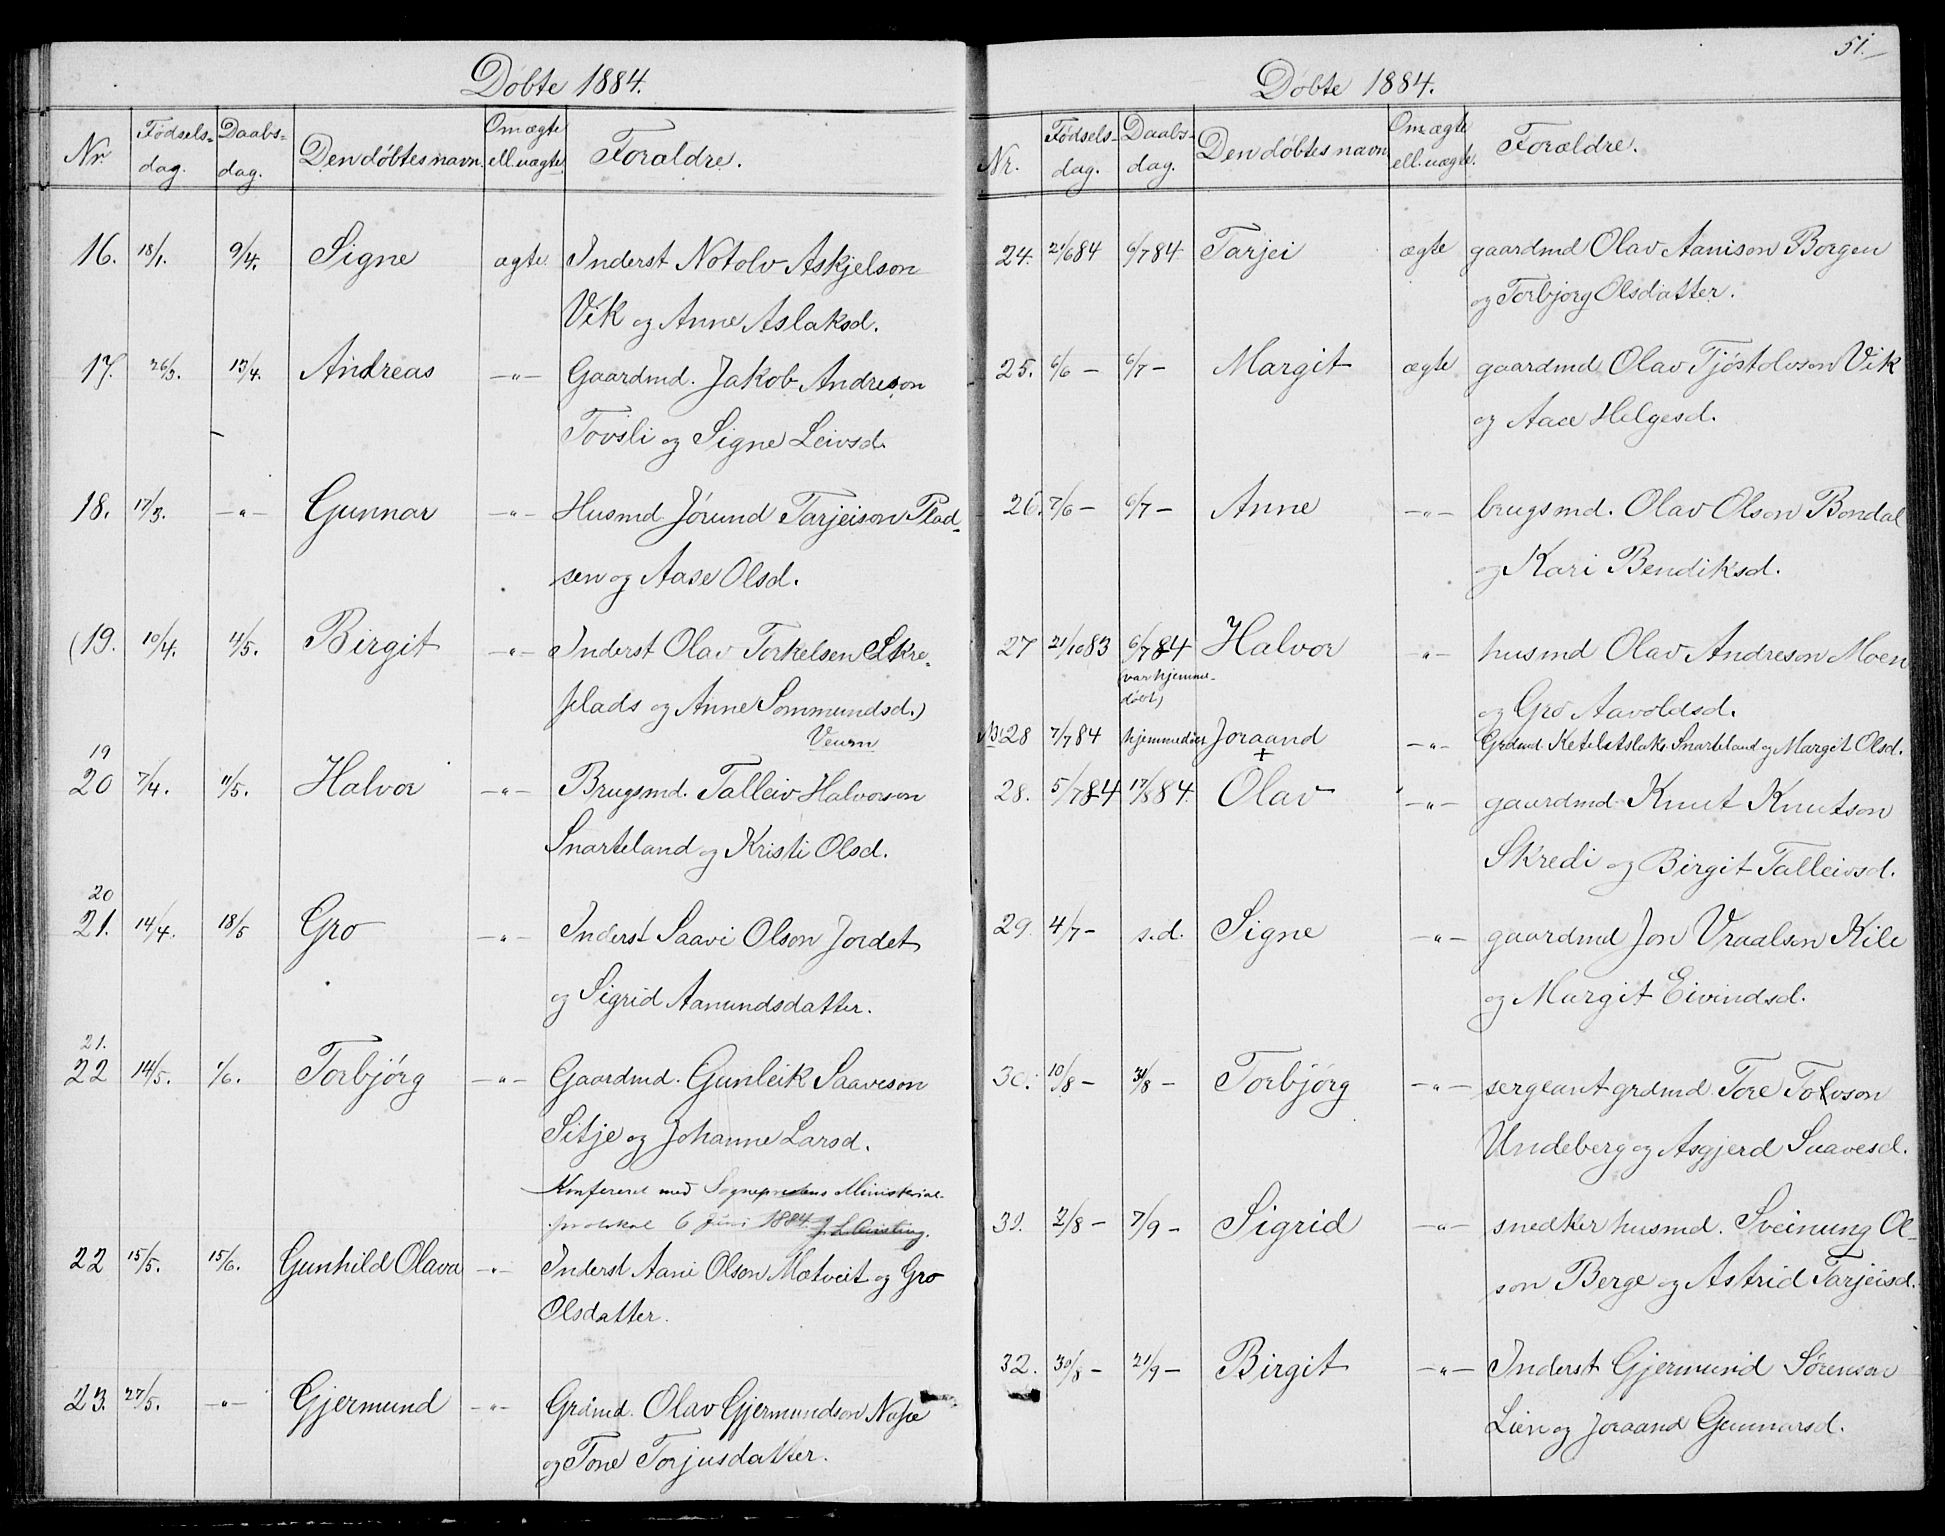 Døbte 1884.
Nr Fødsels- dag. Daabs- dag. Den døbtes navn. Om ægte ell. uægte. Forældre.
16. 18/1. 9/4. Signe ægte. Inderst Notolv Askjelson
Vik og Anne Aslaksd.
17. 26/3. 13/4. Andreas -"- Gaardmd. Jakob Andreson
Tovsli og Signe Leivsd.
18. 17/3. -"- Gunnar -"- Husmd Jørund Tarjeison Plad-
sen og Aase Olsd.
(19. 10/4. 4/5. Birgit -"- Inderst Olav Torkelsen Skre-
plads og Anne Sommundsd.)
Veum
19
20 7/4. 11/5. Halvor -"- Brugsmd. Talleiv Halvorson
Snarteland og Kristi Olsd.
20
21. 14/4. 18/5 Gro -"- Inderst Saavi Olson Jordet
og Sigrid Aamundsdatter.
21.
22 14/5. 1/6. Torbjørg -"- Gaardmd. Gunleik Saaveson
Sitje og Johanne Larsd.
Konfereret med Sogneprestens Ministerial-
protokol 6 Juni 1884.
22 15/5. 15/6. Gunhild Olava -"- Inderst Aani Olson Motveit og Gro
Olsdatter.
23. 27/5. -"- Gjermund -"- Grdmd. Olav Gjermundson Nape
og Tone Torjusdatter.
51.
Døbte 1884.
Nr. Fødsels- dag. Daabs- dag. Den døbtes navn Om ægte ell. uægte. Forældre.
24. 21/6 84 6/7 84. Tarjei ægte gaardmd Olav Aanison Borgen
og Torbjørg Olsdatter.
25. 6/6 - 6/7 - Margit ægte gaardmd Olav Tjøstolvson Vik
og Aace Helgesd.
26. 7/6 - 6/7 - Anne -"- brugsmd. Olav Olson Bondal
og Kari Bendiksd.
27 21/10 83 6/7 84 Halvor -"- husmd Olav Andreson Moen
(var hjemme-
døbt)
og Gro Aavoldsd.
28 7/7 84 hjemmedøbt Joraand -"- Grdmd. Ketil Aslaks. Snarteland og Margit Olsd.
+
28. 5/7 84 17/8 84. Olav -"- gaardmd Knut Knutson
Skredi og Birgit Talleivsd.
29. 4/7 - s.d. Signe -"- gaardmd Jon Vraalson Kile
og Margit Eivindsd.
30. 10/8 - 31/8 - Torbjørg -"- sergeant grdmd. Tore Tovson
Undeberg og Asgjerd Saavesd.
31. 2/8 - 7/9 - Sigrid -"- snedker husmd. Sveinung Ol-
son Berge og Astrid Tarjeisd.
32. 30/8 - 21/9 - Birgit -"- Inderst Gjermund Sørenson
Lien og Joraand Gunnarsd.